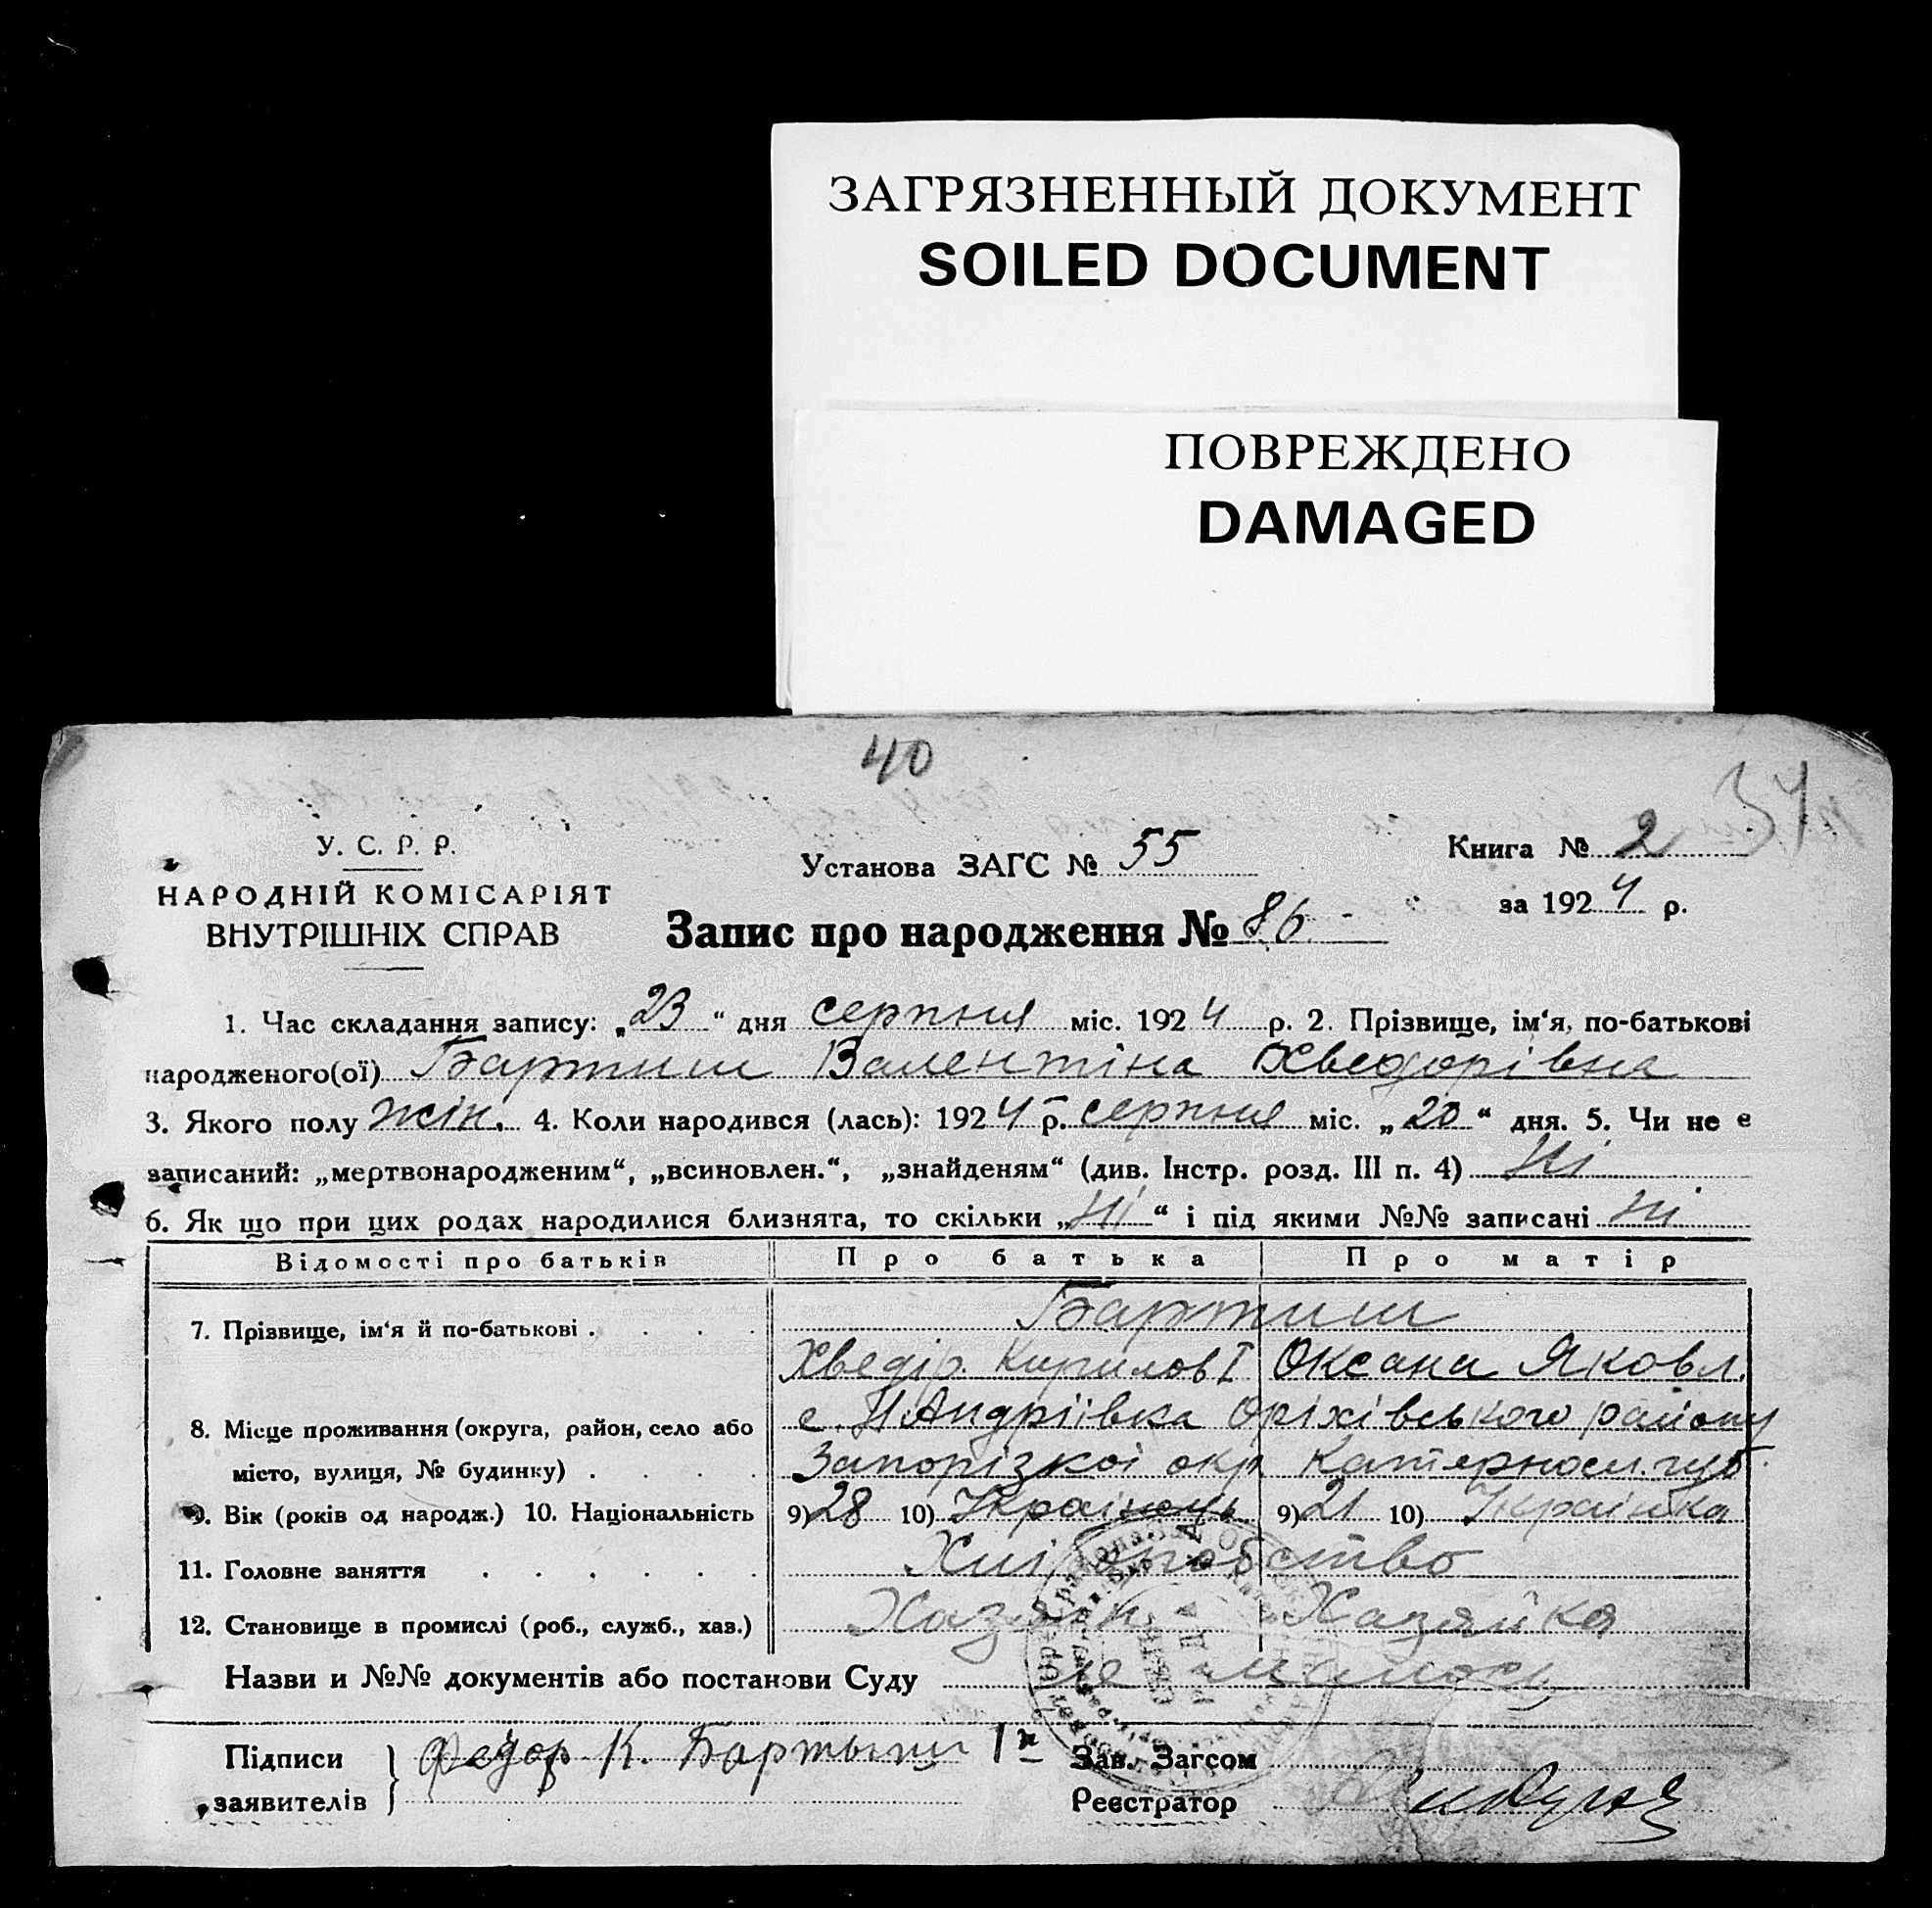 ЗАГРЯЗНЕННЫЙ ДОКУМЕНТ
SOILED DOCUMENT
ПОВРЕЖДЕНО
DAMAGED
40
37
У. С. Р. Р.
НАРОДНІЙ КОМІСАРІЯТ
ВНУТРІШНІХ СПРАВ
Установа ЗАГС № 55
Книга № 2
за 1924 р.
Запис про народження № 86
1. Час складання запису: „23“ дня серпня міс. 1924 р. 2. Прізвище, ім‘я, по-батькові
народженого(ої) Бартиш Валентіна Хведорівна
3. Якого полу жін. 4. Коли народився (лась): 1924 р. серпня міс. „20“ дня. 5. Чи не є
записаний: „мертвонародженим“, „всиновлен.“, „знайденям“ (див. Інстр. розд. III п. 4) Ні
6. Як що при цих родах народилися близнята, то скільки „Ні“ і під якими №№ записані ні
Відомості про батьків Про батька Про матір
7. Прізвище, ім‘я й по-батькові . . . . Бартиш
Хведір. Кирилов I Оксана Яковл.
8. Місце проживання (округа, район, село або с. Н Андріївка Оріхівського району
місто, вулиця, № будинку) . . . . Запорізкоі окр Катериносл. губ.
9. Вік (років од народж.) 10. Національність 9) 28 10) Українець 9) 21 10) Українка
11. Головне заняття . . . . . . Хліборобство
12. Становище в промислі (роб., служб., хаз.) Хазяїн Хазяйка
Назви и №№ документів або постанови Суду не малось
Підписи заявителів Федор К. Бартыш 1й
Зав. Загсом
Реєстратор